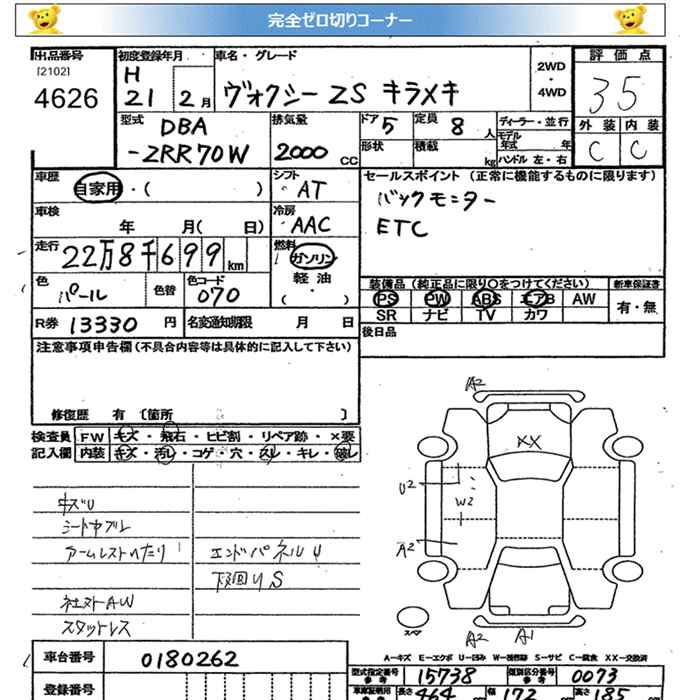 完全ゼロ切りコーナー
出品番号 初度登録年月 車名・グレード 評価点
[2102] H 2WD
4626 21 2月 ヴォクシー ZS キラメキ ・4WD 35
型式 排気量 ドア 定員 ディーラー・並行 外装 内装
DBA 5 8人 モデル年式 年 C C
-ZRR70W 2000cc 形状 積載 kg ハンドル 左・右
車歴 シフト セールスポイント(正常に機能するものに限ります)
自家用・( ) AT バックモニター
車検 冷房 ETC
年 月( 日) AAC
走行 燃料
22万8千699km ガソリン
色 色替 色コード 軽油 装備品(純正品に限り○をつけてください) 新車保証書
パール 070 ・( ) PS PW ABS エアB AW 有・無
SR ナビ TV カワ
R券 13330円 名変通知期限 月 日 後日品
注意事項申告欄(不具合内容等は具体的に記入して下さい)
修復歴 有〔箇所 〕
検査員 FW キズ・飛石・ヒビ割・リペア跡・×要
記入欄 内装 キズ・汚レ・コゲ・穴・スレ・キレ・破レ
A2
XX
U2
W2
A2
キズU
シートヤブレ
アームレストヘタリ エンドパネルU
下回りS
社外AW
スタットレス
スペア A2 A1
A-キズ E-エクボ U-凹み W-補修跡 S-サビ C-腐食 XX-交換済
車台番号 0180262 型式指定番号 参考 15738 類別区分番号 参考 0073
登録番号 長さ 464 幅 172 高さ 185